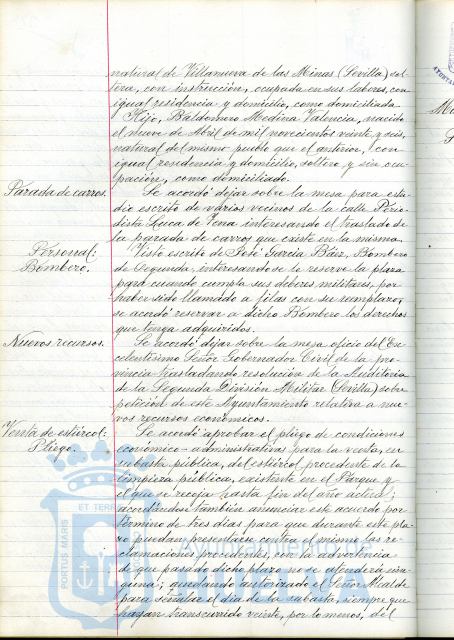 natural de Villanueva de las Minas (Sevilla) sol-
tera, con instrucción, ocupada en sus labores, con
igual residencia y domicilio, como domiciliada
Hijo, Baldomero Medina Valencia, nacido
el nueve de Abril de mil novecientos veinte y seis,
natural del mismo pueblo que el anterior, con
igual residencia y domicilio, soltero y sin ocu-
pación, como domiciliado.
Parada de carros.
Se acordó dejar sobre la mesa para estu-
dio escrito de varios vecinos de la calle Perio-
dista Luca de Tena interesando el traslado de
la parada de carros que existe en la misma.
Personal:
Bombero.
Visto escrito de José García Báez, Bombero
de Segunda, interesando se le reserve la plaza
para cuando cumpla sus deberes militares, por
haber sido llamado a filas con su reemplazo,
se acordó reservar a dicho Bombero los derechos
que tenga adquiridos.
Nuevos recursos.
Se acordó dejar sobre la mesa oficio del Ex-
celentísimo Señor Gobernador Civil de la pro-
vincia trasladando resolución de la Auditoría
de la Segunda División Militar (Sevilla) sobre
petición de este Ayuntamiento relativa a nue-
vos recursos económicos.
Venta de estiércol:
Pliego.
Se acordó aprobar el pliego de condiciones
económico-administrativas para la venta, en
subasta pública, del estiércol procedente de la
limpieza pública, existente en el Parque y
el que se recoja hasta fin del año actual;
acordándose también anunciar este acuerdo por
término de tres días para que durante este pla-
zo puedan presentarse contra el mismo las re-
clamaciones procedentes, con la advertencia
de que pasado dicho plazo no se atenderá nin-
guna; quedando autorizado el Señor Alcalde
para señalar el día de la subasta, siempre que
hayan transcurrido veinte, por lo menos, del
PORTUS MARIS
ET TERR